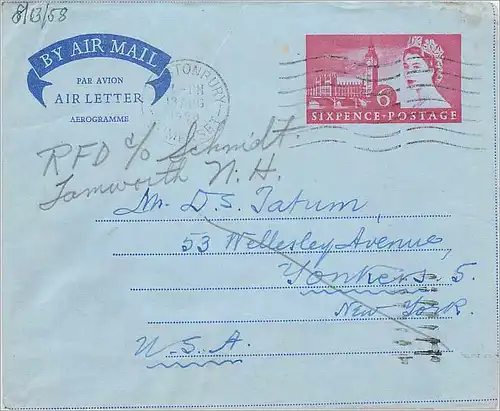 8/13/58
BY AIR MAIL
PAR AVION
AIR LETTER
AEROGRAMME
13 AUG
1958
6D
SIXPENCE·POSTAGE
RFD c/o Schmidt.
Tamworth N.H.
Mr. D.S. Tatum,
53 Wellesley Avenue,
Yonkers 5.
New York.
U.S.A.